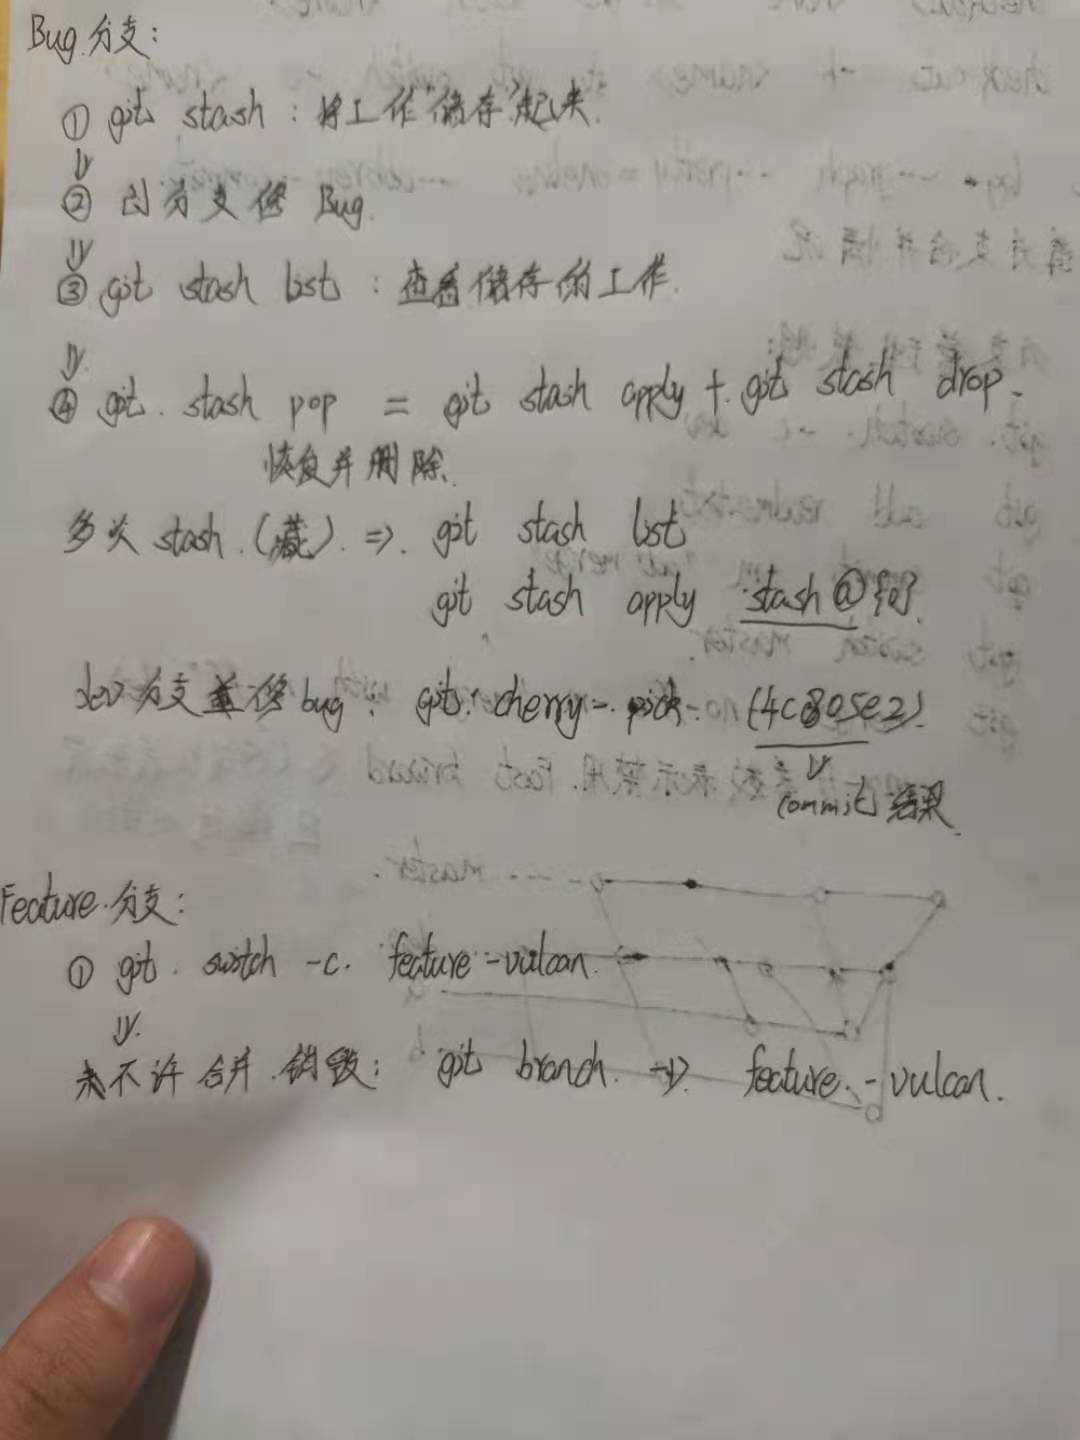 Bug 分支:
① git stash : 将工作"储存"起来.
② 创分支修 Bug.
③ git stash list : 查看储存的工作.
④ git stash pop = git stash apply + git stash drop.
恢复并删除.
多次 stash (藏) => git stash list
git stash apply stash@{0}.
dev 分支重修 bug: git cherry-pick (4c805e2)
commit 结果.
Feature 分支:
① git switch -c feature-vulcan.
未不许合并.销毁: git branch -D feature-vulcan.